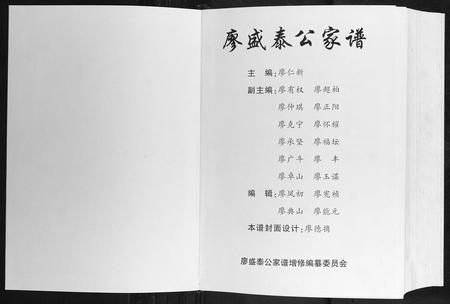 廖盛泰公家谱
主　编：廖仁新
副主编：廖有权　廖超柏
廖仲琪　廖正阳
廖克宁　廖怀耀
廖承坚　廖福坛
廖广斗　廖　丰
廖卓山　廖玉谋
编　辑：廖凤初　廖宪桢
廖典山　廖能元
本谱封面设计：廖德搠
廖盛泰公家谱增修编纂委员会